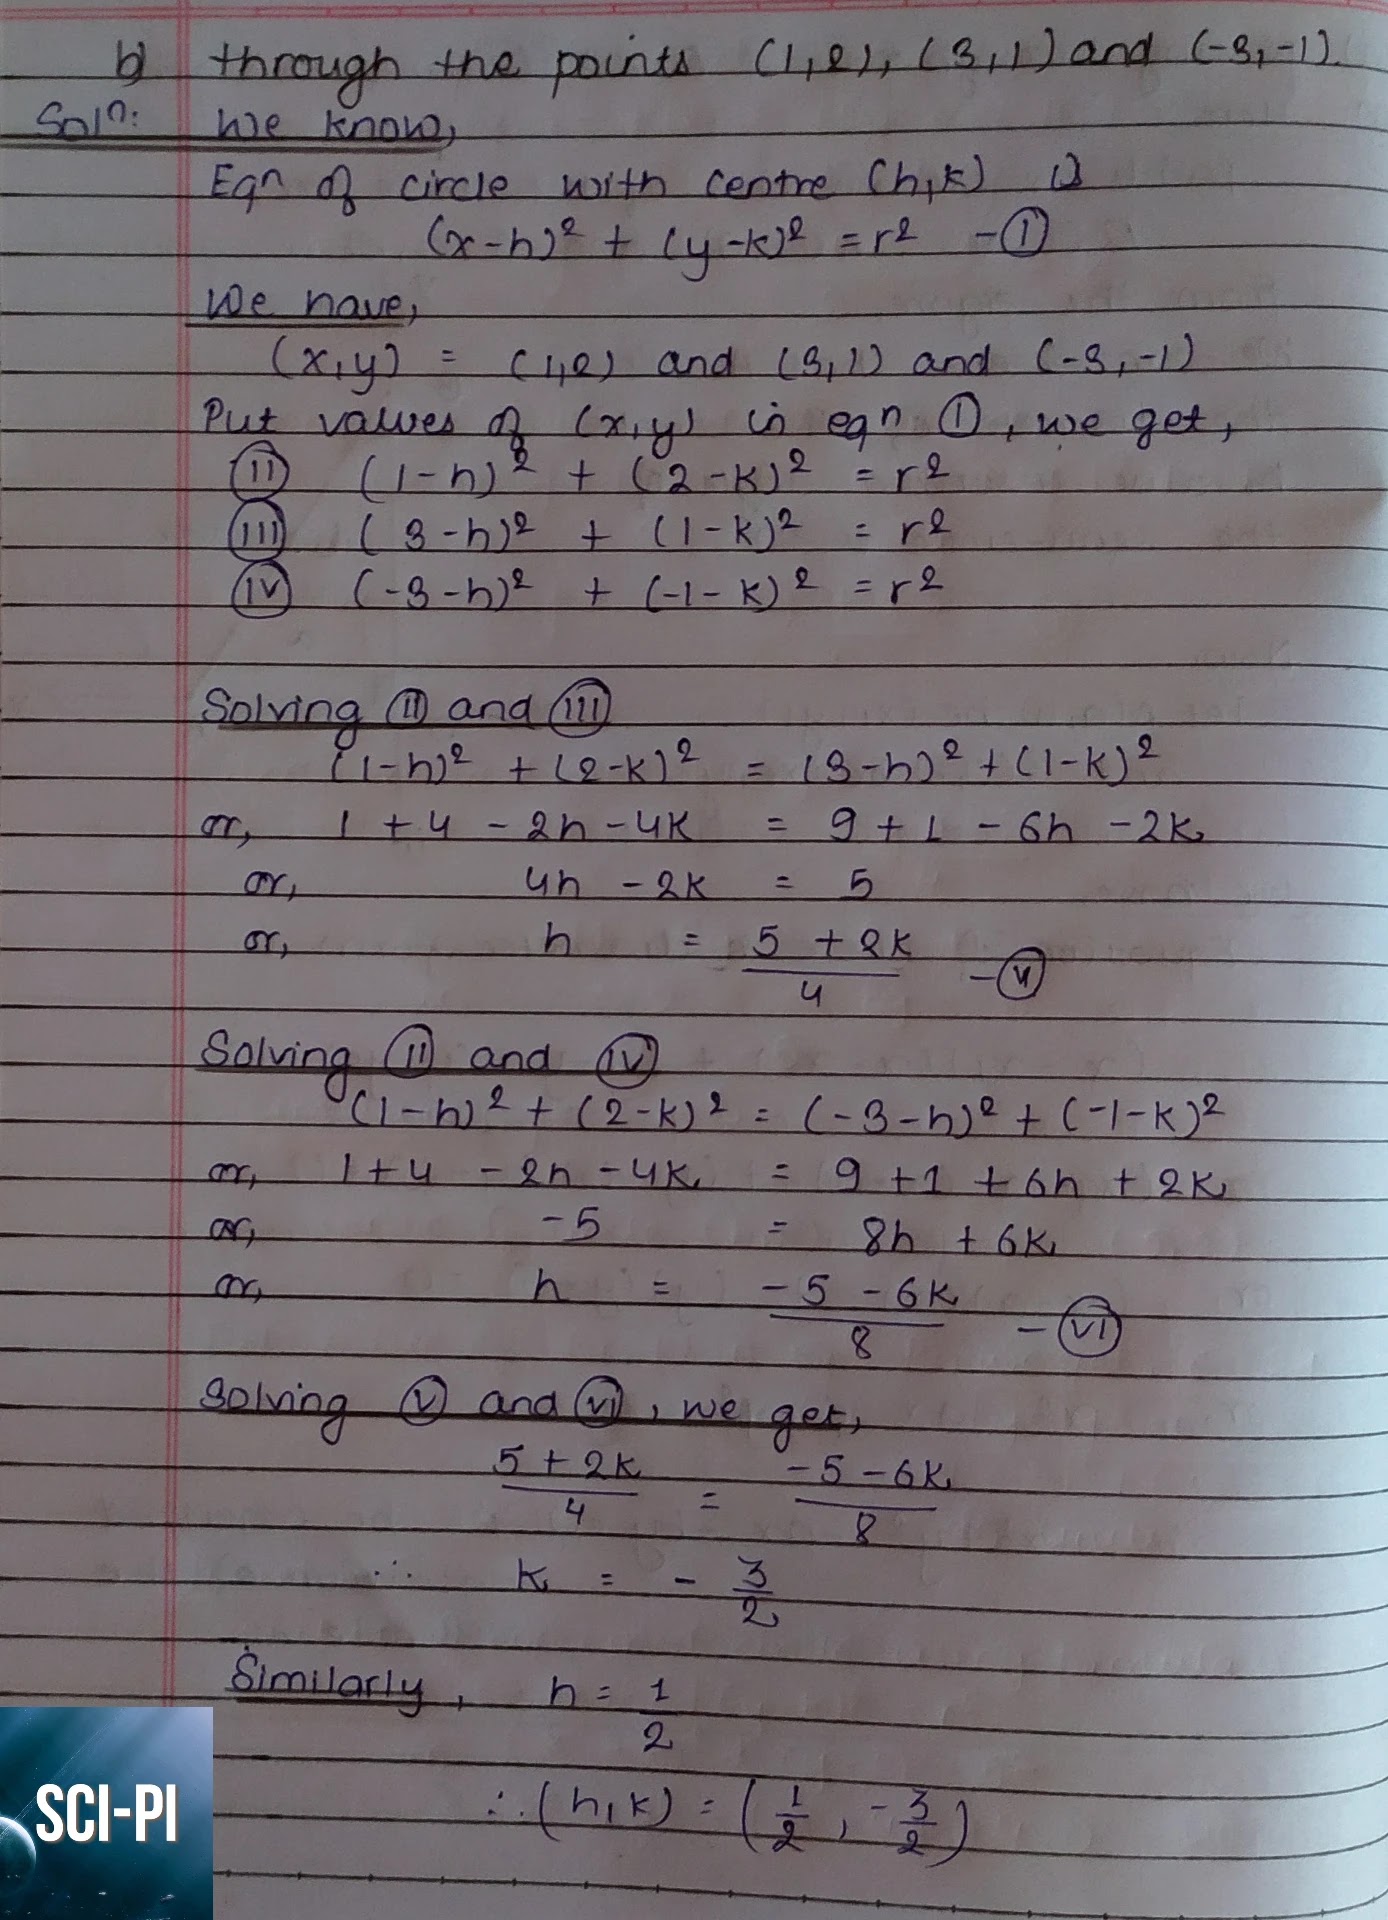 b) through the points (1,2), (3,1) and (-3,-1).
Solⁿ: We know,
Eqn of circle with centre (h,k) is
(x-h)² + (y-k)² = r² - ①
We have,
(x,y) = (1,2) and (3,1) and (-3,-1)
Put values of (x,y) in eqn ①, we get,
Ⅱ (1-h)² + (2-k)² = r²
Ⅲ (3-h)² + (1-k)² = r²
Ⅳ (-3-h)² + (-1-k)² = r²
Solving Ⅱ and Ⅲ
(1-h)² + (2-k)² = (3-h)² + (1-k)²
or, 1 + 4 - 2h - 4k = 9 + 1 - 6h - 2k
or, 4h - 2k = 5
or, h = 5 + 2k / 4 - Ⅴ
Solving Ⅱ and Ⅳ
(1-h)² + (2-k)² = (-3-h)² + (-1-k)²
or, 1+4 - 2h - 4k = 9 + 1 + 6h + 2k
or, -5 = 8h + 6k
or, h = -5 - 6k / 8 - Ⅵ
Solving Ⅴ and Ⅵ, we get,
5 + 2k / 4 = -5 - 6k / 8
∴ k = - 3/2
Similarly, h = 1/2
∴ (h,k) = (1/2, -3/2)
SCI-PI